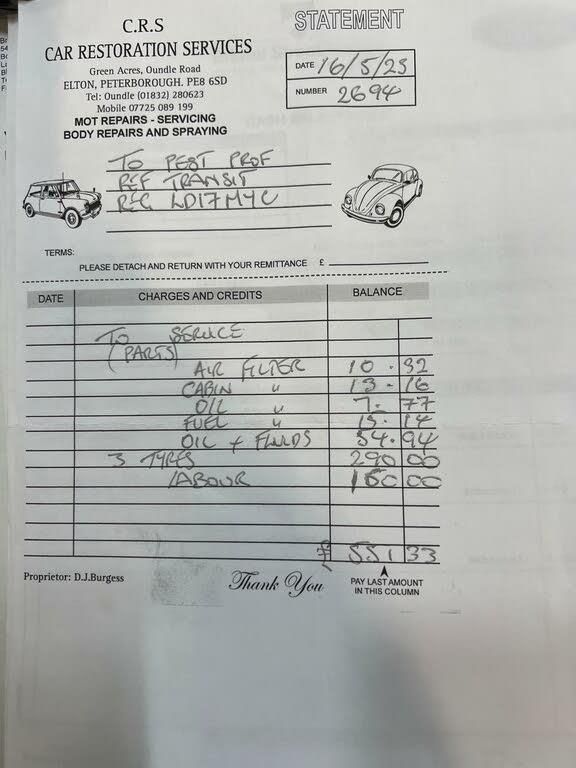 C.R.S
CAR RESTORATION SERVICES
Green Acres, Oundle Road
ELTON, PETERBOROUGH. PE8 6SD
Tel: Oundle (01832) 280623
Mobile 07725 089 199
MOT REPAIRS - SERVICING
BODY REPAIRS AND SPRAYING
STATEMENT
DATE 16/5/23
NUMBER 2694
TO PEST PROF
REF TRANSIT
REG LD17MYC
TERMS:
PLEASE DETACH AND RETURN WITH YOUR REMITTANCE £
DATE CHARGES AND CREDITS BALANCE
TO SERVICE
(PARTS)
AIR FILTER 10.32
CABIN " 13-16
OIL " 7.77
FUEL " 15.14
OIL + FLUIDS 54.94
3 TYRES 290 00
LABOUR 160 00
£ 551 33
Proprietor: D.J.Burgess
Thank You
PAY LAST AMOUNT
IN THIS COLUMN